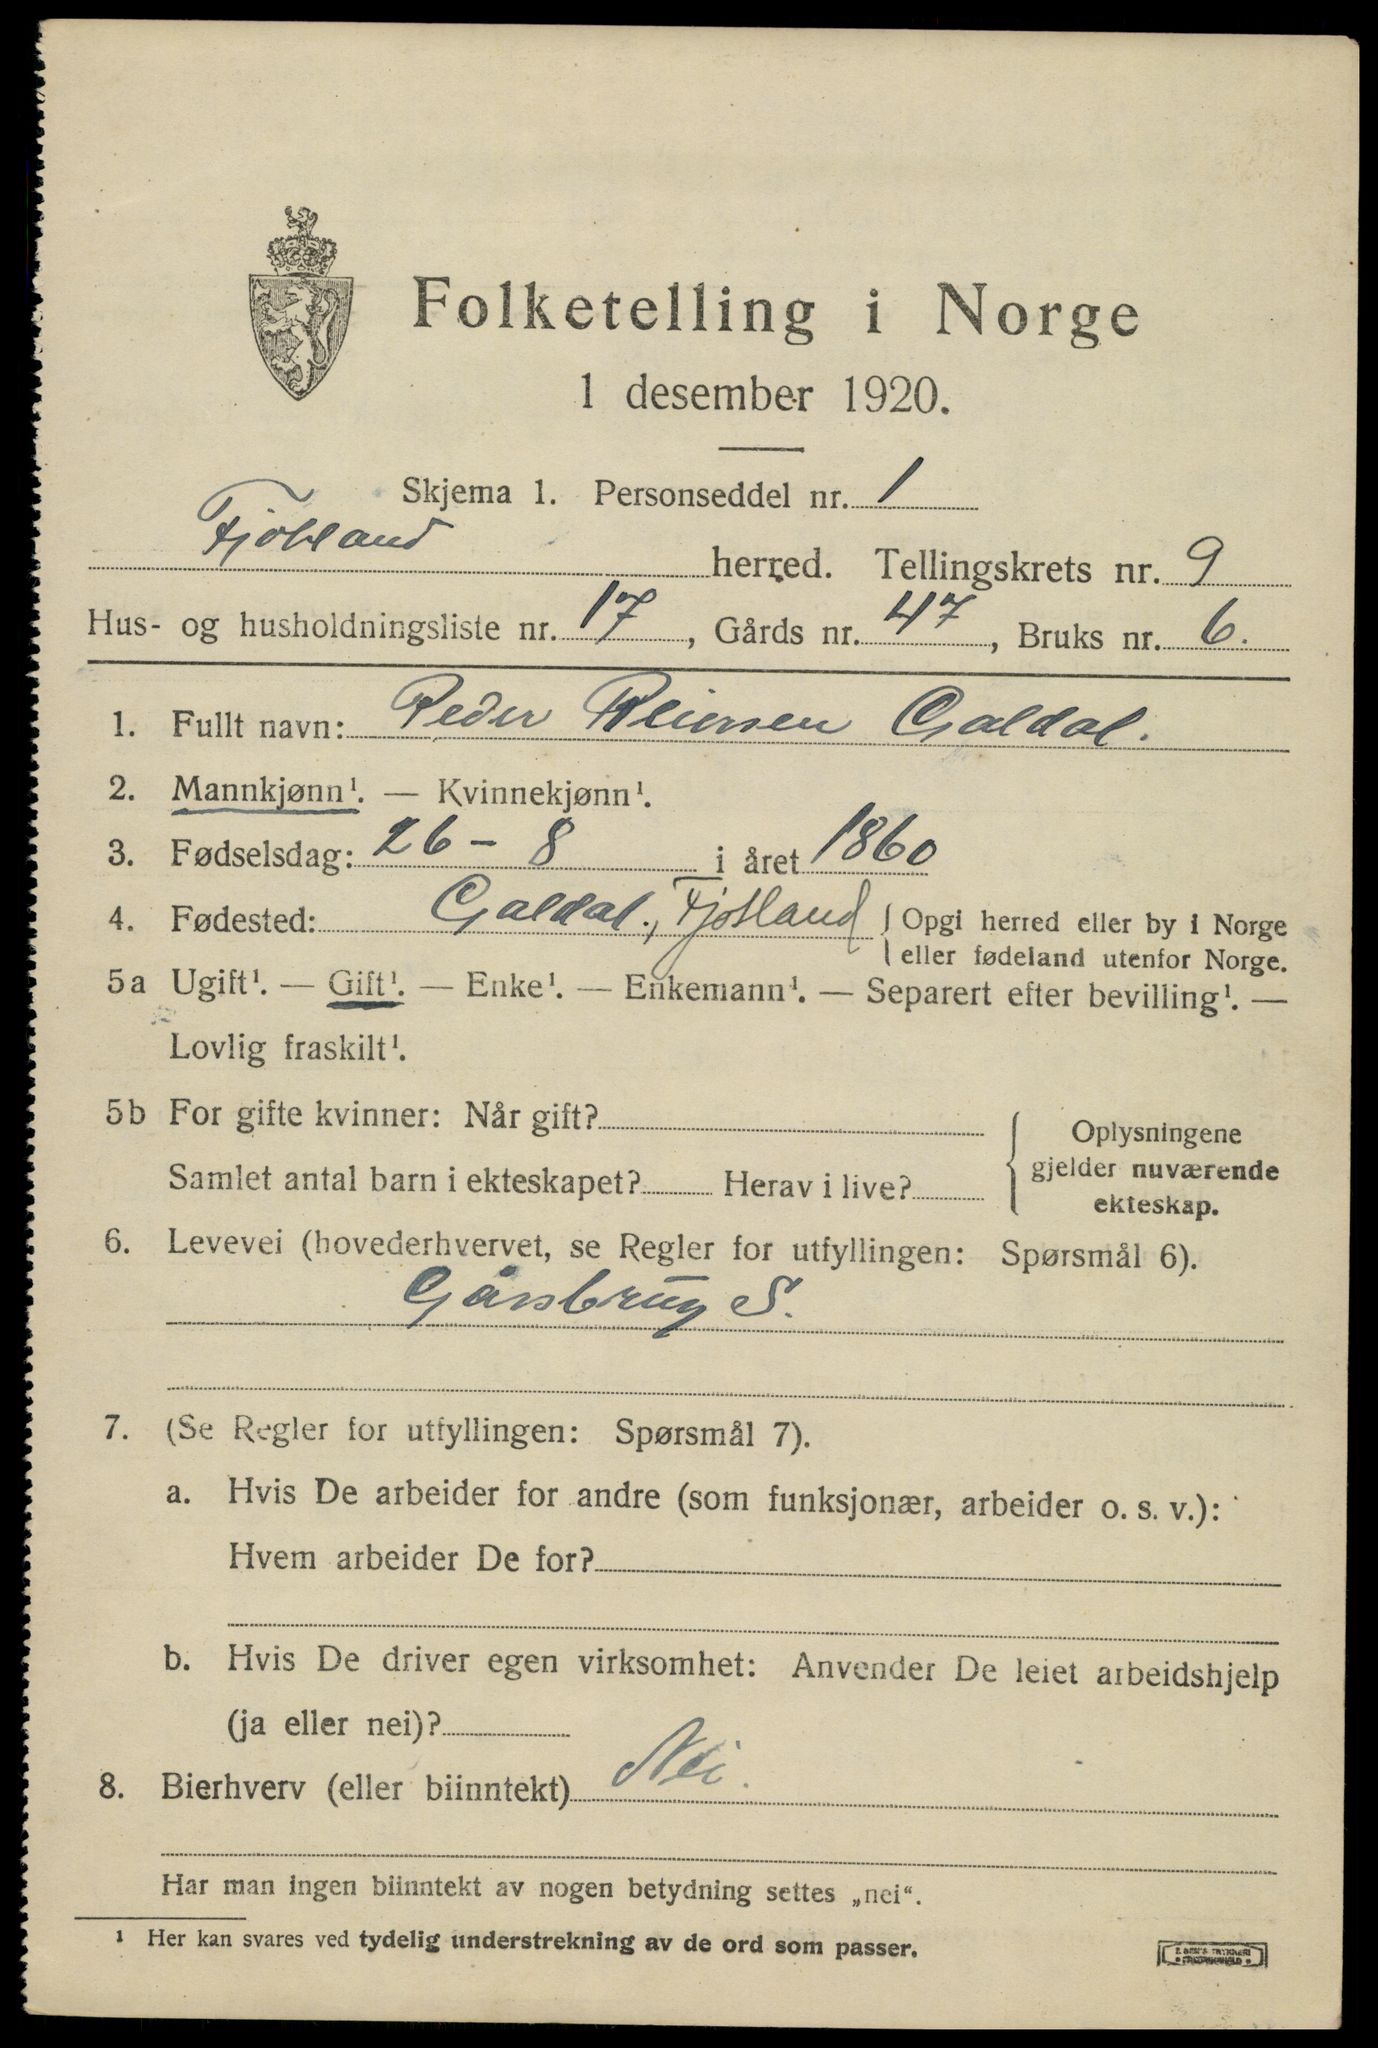 Folketelling i Norge
1 desember 1920.
Skjema 1. Personseddel nr. 1
Fjotland herred. Tellingskrets nr. 9
Hus- og husholdningsliste nr. 17, Gårds nr. 47, Bruks nr. 6.
1. Fullt navn: Peder Reiersen Galdal.
2. Mannkjønn¹. — Kvinnekjønn¹.
3. Fødselsdag: 26 - 8 i året 1860
4. Fødested: Galdal, Fjotland { Opgi herred eller by i Norge
eller fødeland utenfor Norge.
5a Ugift¹. — Gift¹. — Enke¹. — Enkemann¹. — Separert efter bevilling¹. —
Lovlig fraskilt¹.
5b For gifte kvinner: Når gift?
Samlet antal barn i ekteskapet? Herav i live?
Oplysningene
gjelder nuværende
ekteskap.
6. Levevei (hovederhvervet, se Regler for utfyllingen: Spørsmål 6).
Gårsbrug S.
7. (Se Regler for utfyllingen: Spørsmål 7).
a. Hvis De arbeider for andre (som funksjonær, arbeider o. s. v.):
Hvem arbeider De for?
b. Hvis De driver egen virksomhet: Anvender De leiet arbeidshjelp
(ja eller nei)?
8. Bierhverv (eller biinntekt) Nei.
Har man ingen biinntekt av nogen betydning settes „nei“.
¹ Her kan svares ved tydelig understrekning av de ord som passer.